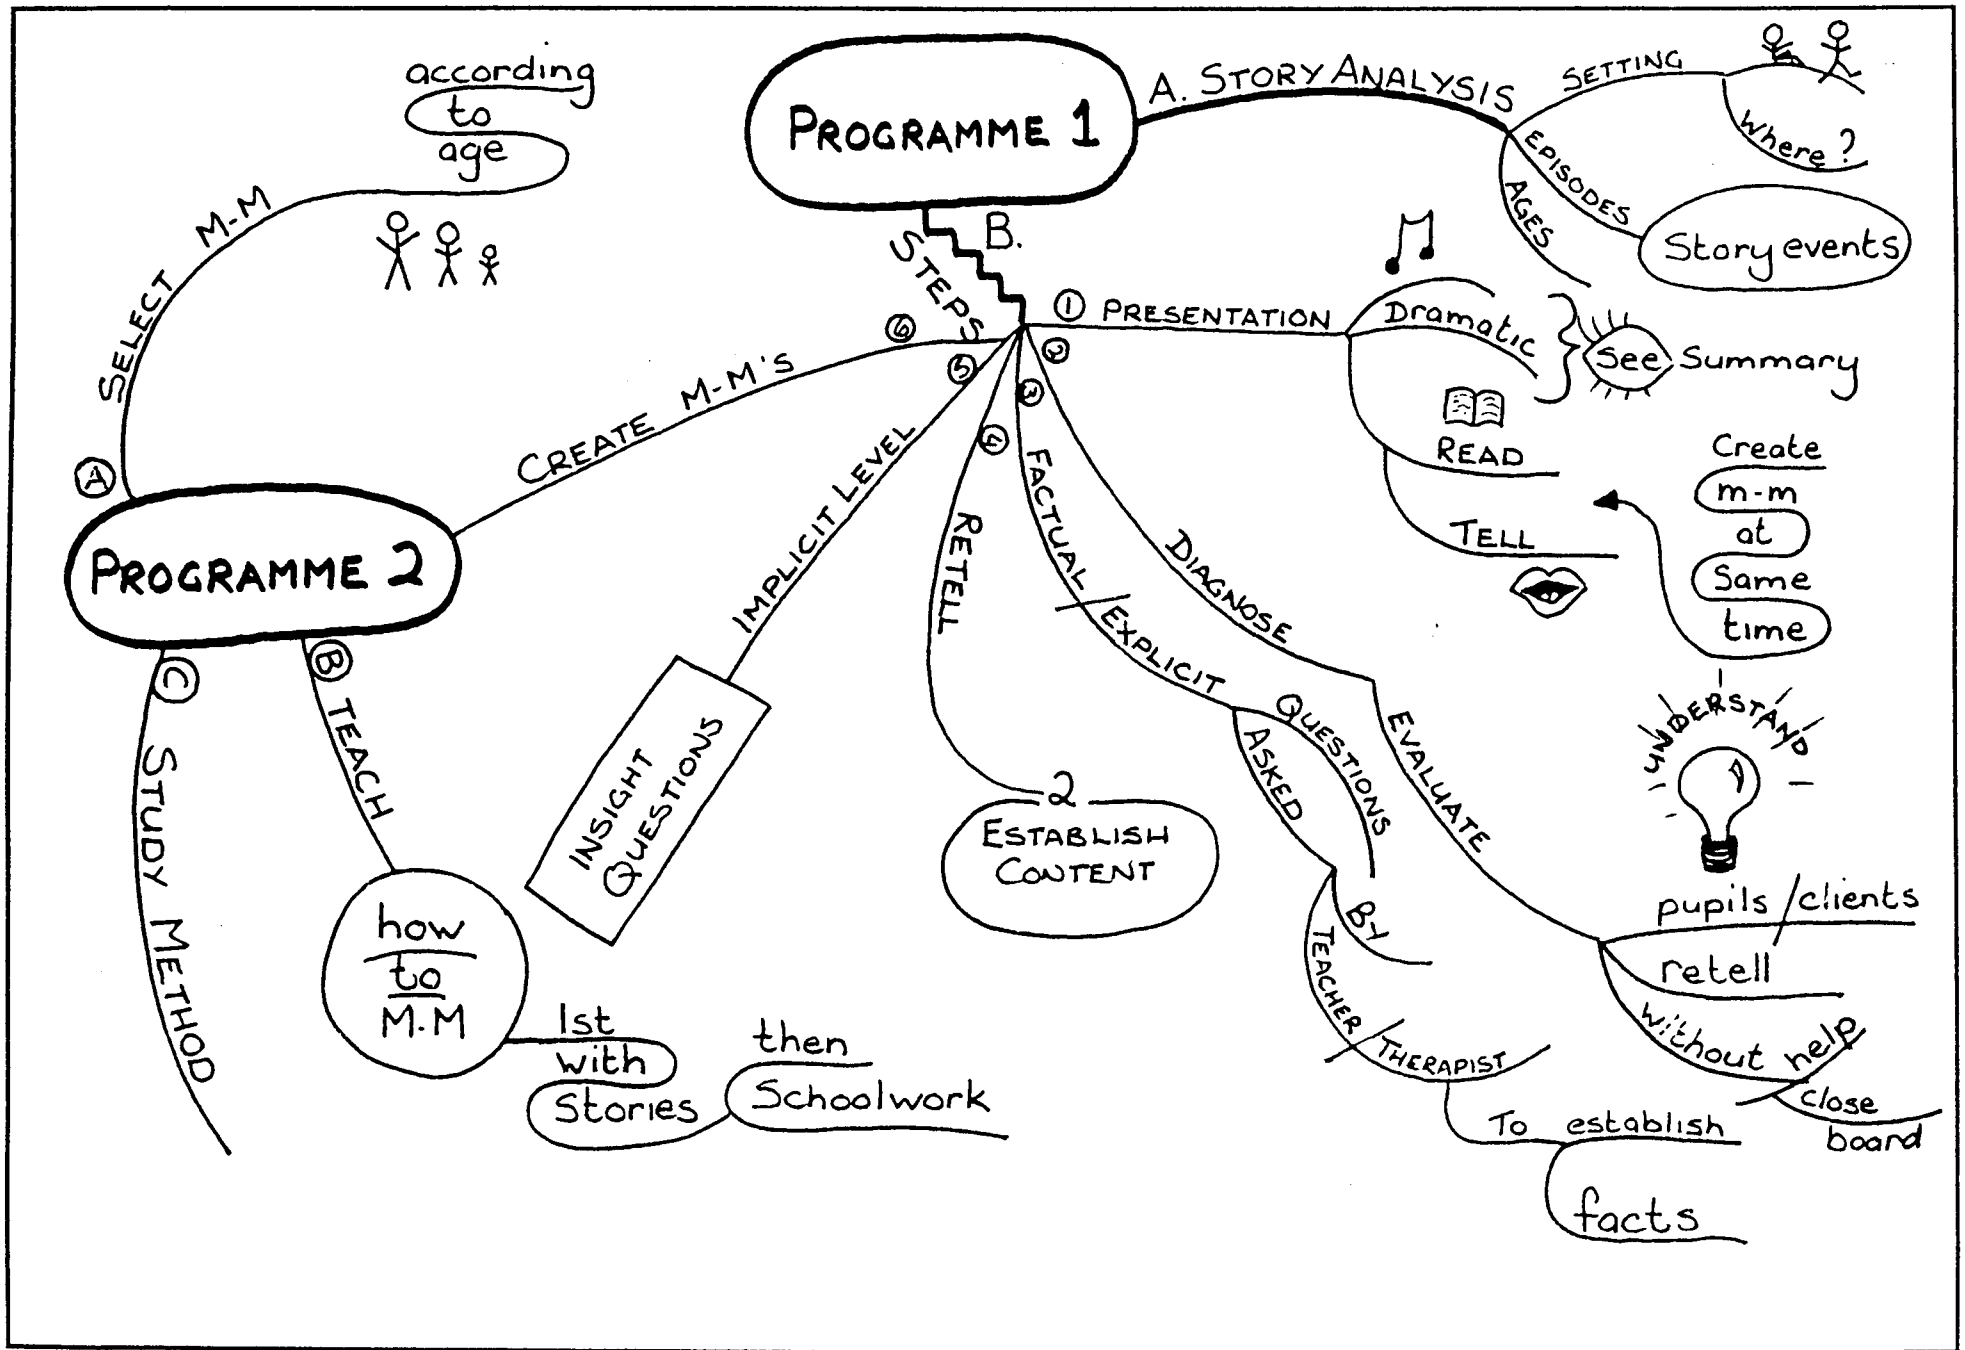 PROGRAMME 1
A. STORY ANALYSIS
SETTING
Where?
EPISODES
Story events
AGES
B.
STEPS
1 PRESENTATION
Dramatic
See Summary
READ
TELL
Create
m-m
at
Same
time
2
DIAGNOSE
EVALUATE
UNDERSTAND
pupils / clients
retell
without help
close
board
3
FACTUAL / EXPLICIT
QUESTIONS
ASKED
BY
TEACHER / THERAPIST
To establish
facts
4
RETELL
2
ESTABLISH
CONTENT
5
IMPLICIT LEVEL
INSIGHT
QUESTIONS
6
CREATE M-M'S
PROGRAMME 2
A
SELECT M-M
according
to
age
B
TEACH
how
to
M.M
1st
with
Stories
then
Schoolwork
C
STUDY METHOD